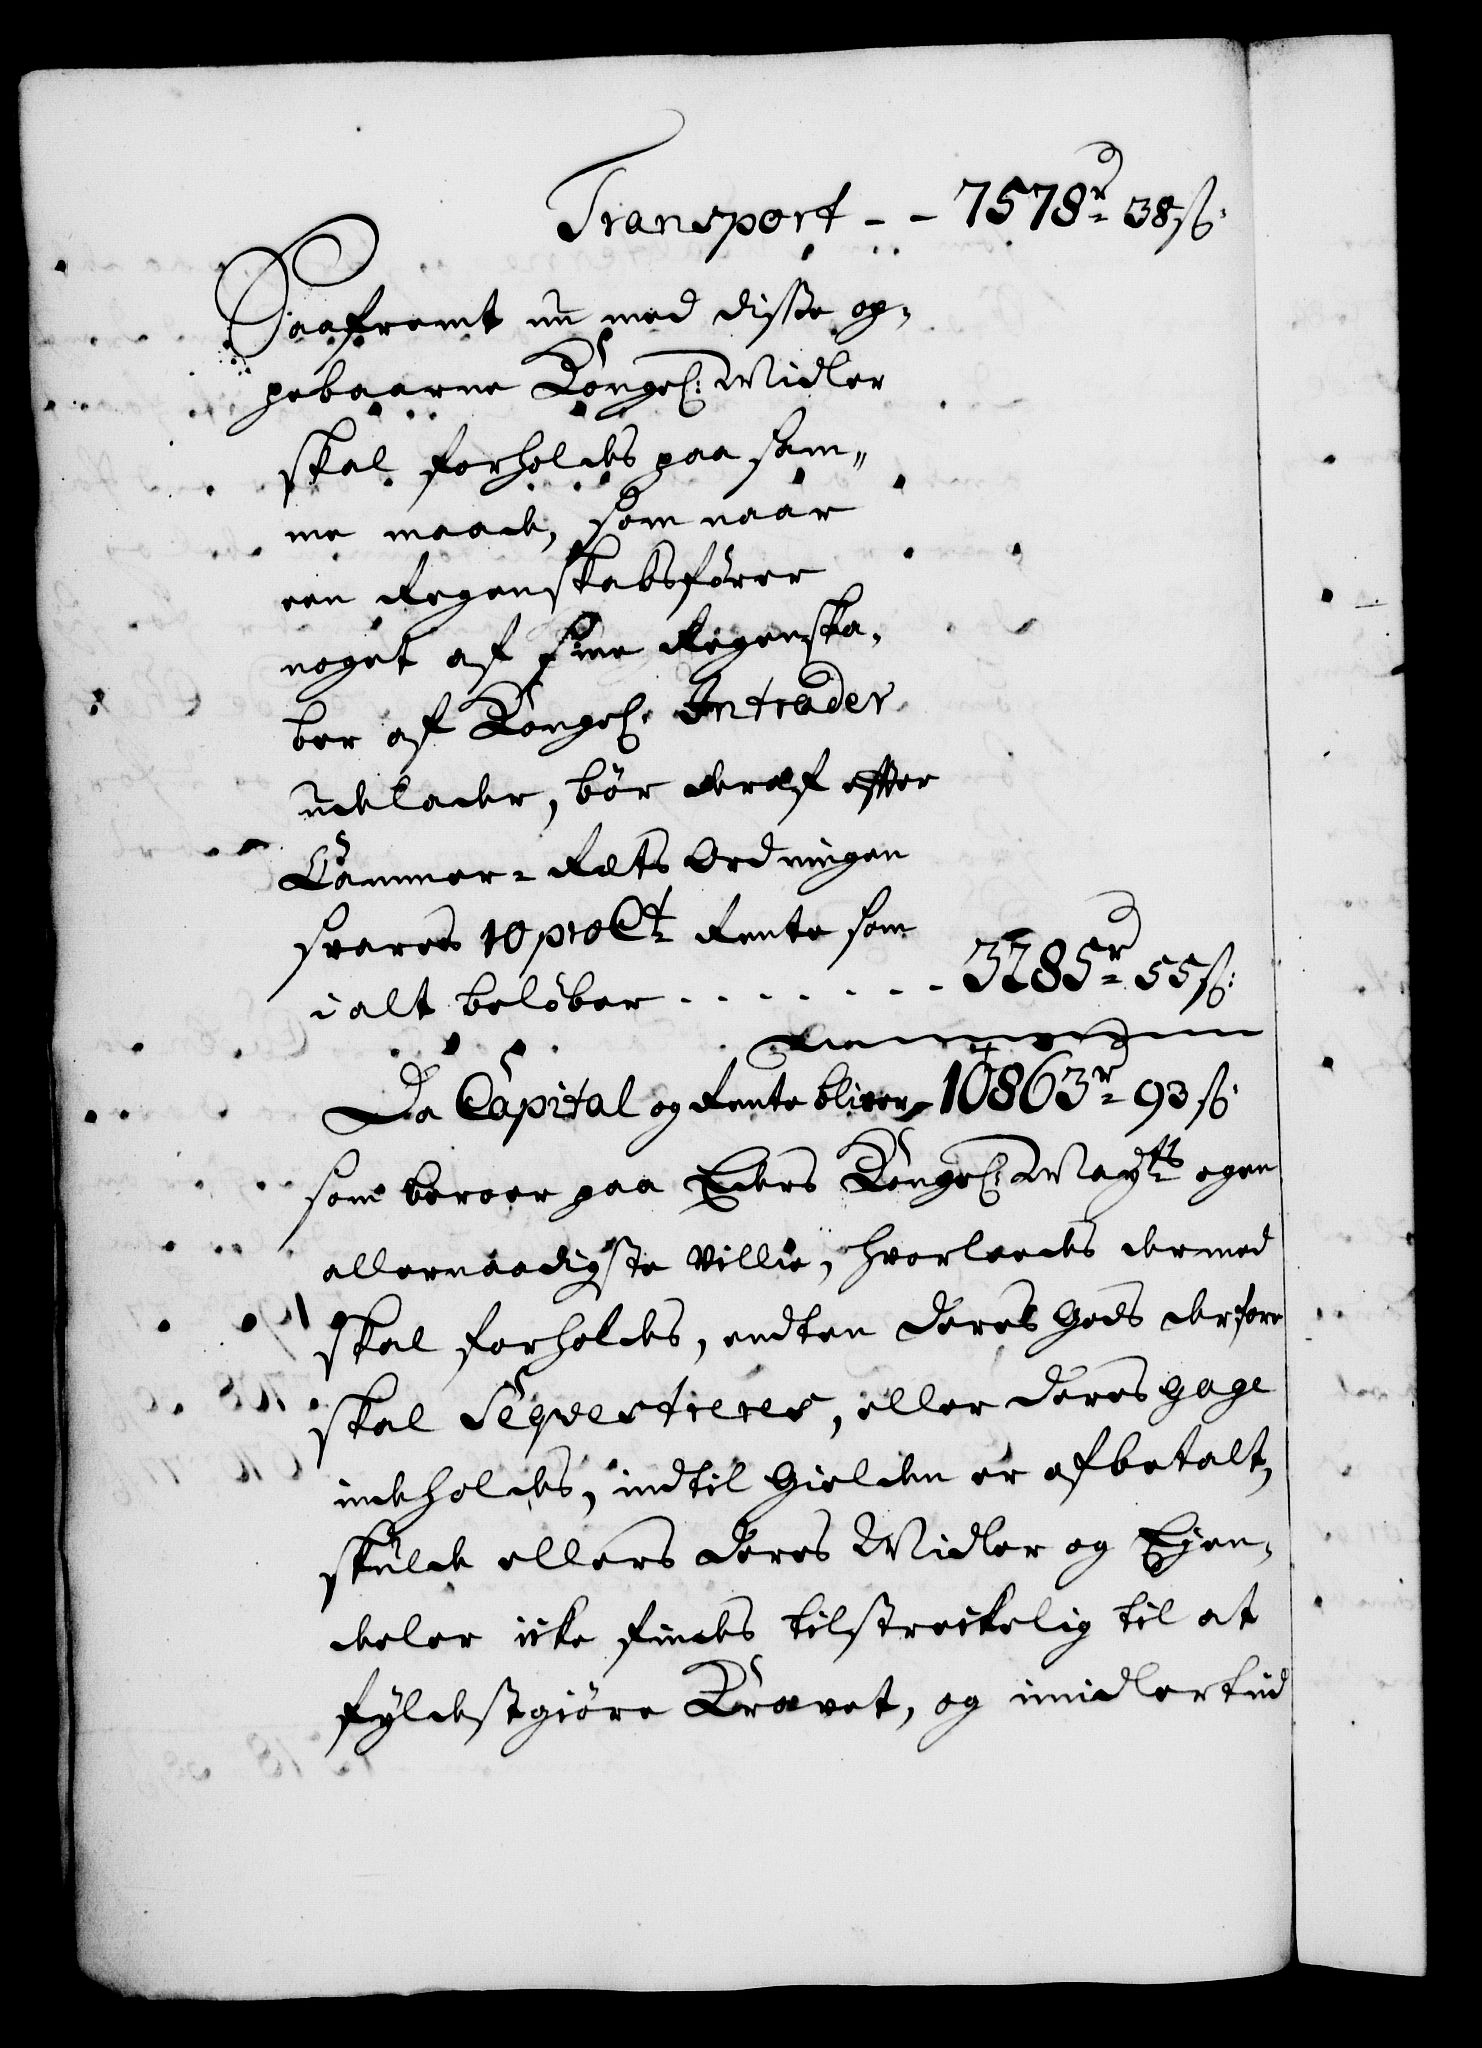 Transport - - 7578rd 38ß:
Saafremt nu med disse op-
pebaarne Kongel: Midler
skal forholdes paa sam-
me maade, som naar
een Regenskabsförer
noget af sine Regenska-
ber af Kongel: Intrader
udelader, bör deraf efter
Cammer-Rets Ordningen
svares 10 pro Ct. Rente som
i alt belöber - - - - - - - 3285rd 55ß:
Da Capital og Rente bliver 10863rd 93ß.
som beroer paa Eders Kongel: Mayts egen
allernaadigste Villie, hvorleedes dermed
skal forholdes, endten deres Gods derfore
skal Seqvestreres, eller deres gage
indeholdes, indtil Gielden er afbetalt,
skulde ellers deres Midler og Eyen-
deler icke findes tilstreckelig til at
fyldestgiöre Kravet, og imidlertiid